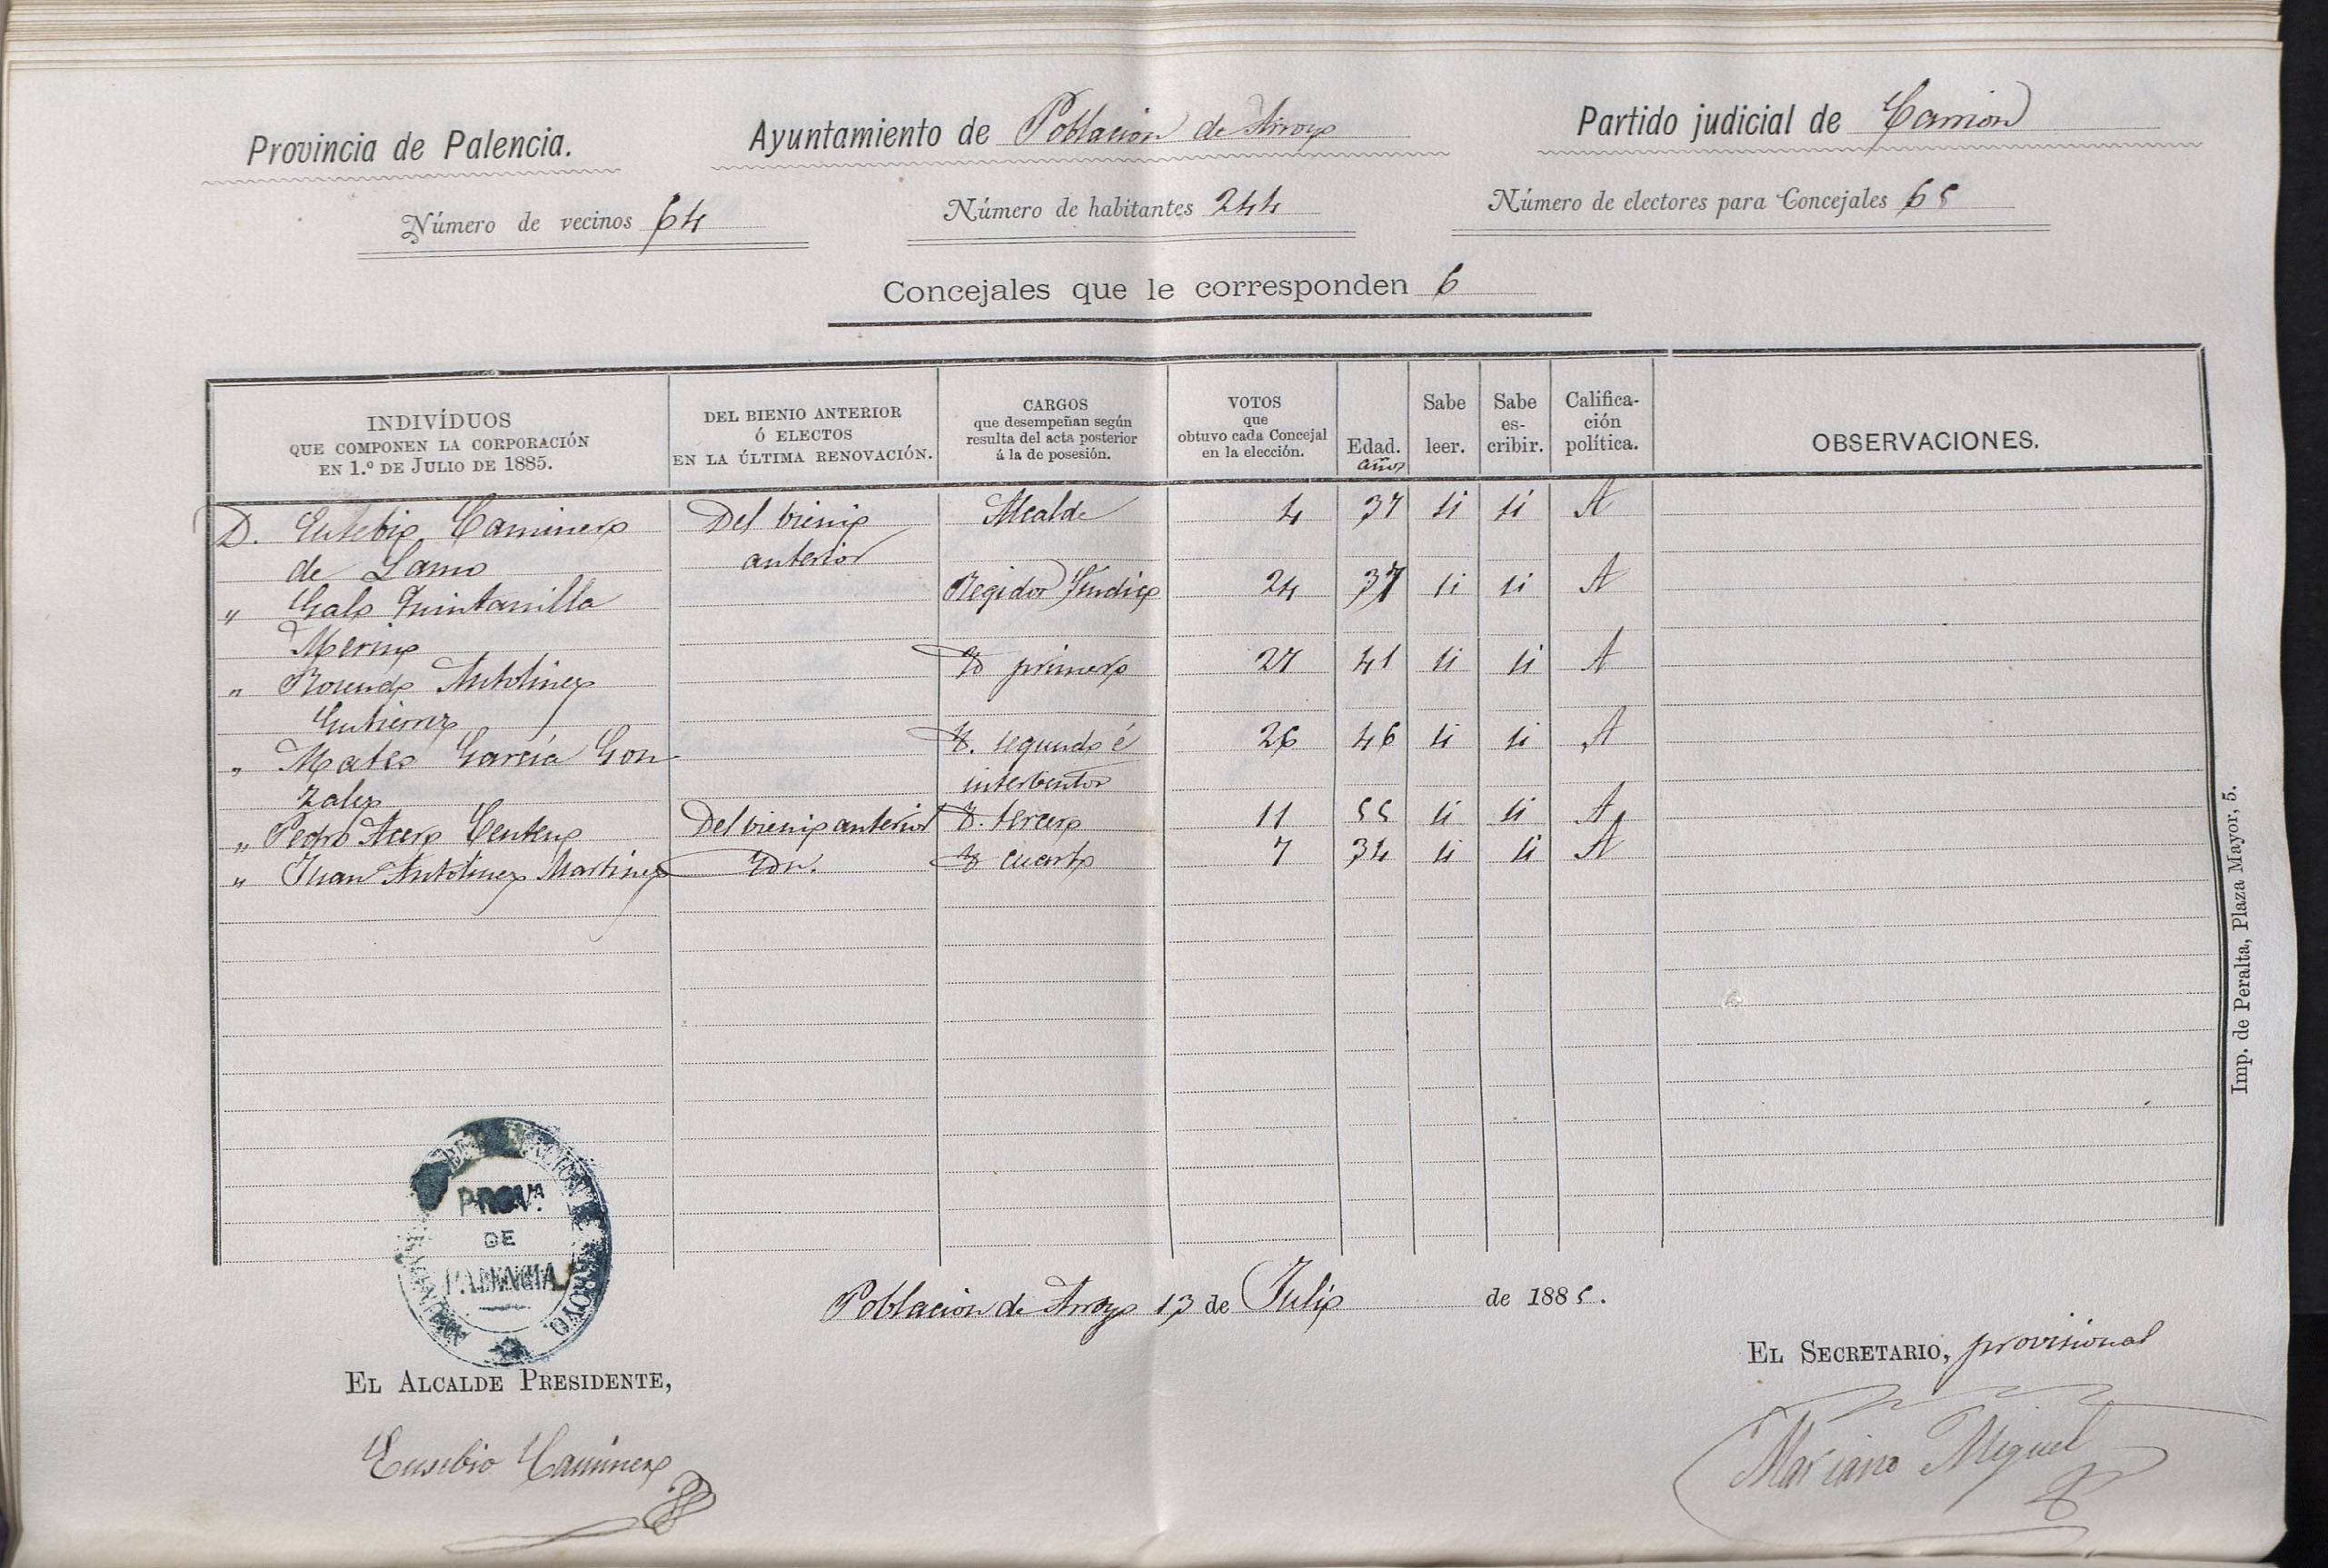 Provincia de Palencia.
Ayuntamiento de Poblacion de Arroyo
Partido judicial de Carrion
Número de vecinos 64
Número de habitantes 244
Número de electores para Concejales 65
Concejales que le corresponden 6
INDIVÍDUOS QUE COMPONEN LA CORPORACIÓN EN 1.º DE JULIO DE 1885.
DEL BIENIO ANTERIOR Ó ELECTOS EN LA ÚLTIMA RENOVACIÓN.
CARGOS que desempeñan según resulta del acta posterior á la de posesión.
VOTOS que obtuvo cada Concejal en la elección.
Edad. años
Sabe leer.
Sabe escribir.
Calificación política.
OBSERVACIONES.
D. Eusebio Caminero Del bienio Alcalde 4 37 si si A
de Lamo anterior
" Galo Quintanilla Regidor Síndico 24 37 si si A
Merino
" Rosendo Antolinez Yd primero 27 41 si si A
Gutierrez
" Mateo García Gon Yd. segundo é 26 46 si si A
zalez interbentor
" Pedro Acero Centeno Del bienio anterior Yd. tercero 11 55 si si A
" Juan Antolinez Martinez Ydn. Yd cuarto 7 34 si si A
PROV.A
DE
PALENCIA
Poblacion de Arroyo 13 de Julio de 1885.
EL ALCALDE PRESIDENTE,
Eusebio Caminero
EL SECRETARIO, provisional
Mariano Miguel
Imp. de Peralta, Plaza Mayor, 5.